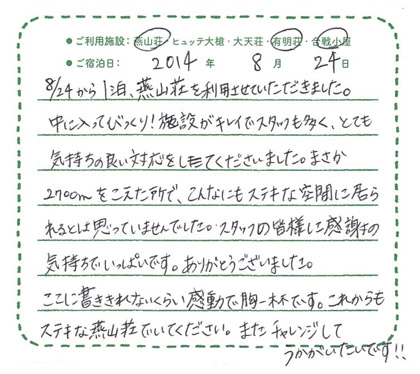 ●ご利用施設：燕山荘・ヒュッテ大槍・大天荘・有明荘・合戦小屋
●ご宿泊日： 2014 年 8 月 24 日
8/24から1泊、燕山荘を利用させていただきました。
中に入ってびっくり！施設がキレイでスタッフも多く、とても
気持ちの良い対応をしてくださいました。まさか
2700mをこえた所で、こんなにもステキな空間に居ら
れるとは思っていませんでした。スタッフの皆様に感謝の
気持ちでいっぱいです。ありがとうございました。
ここに書ききれないくらい感動で胸一杯です。これからも
ステキな燕山荘でいてください。またチャレンジして
うかがいたいです!!